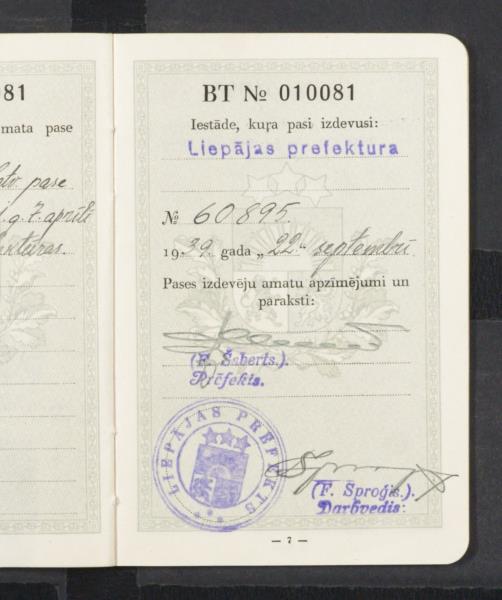 81
mata pase
pase
g. 7. aprīlī
BT № 010081
Iestāde, kuŗa pasi izdevusi:
Liepājas prefektura
№ 60895.
1939. gada „22." septembrī
Pases izdevēju amatu apzīmējumi un
paraksti:
(F. Šaberts.).
Prēfekts.
LIEPĀJAS PREFEKTS
(F. Sproģis.).
Darbvedis:
— 7 —